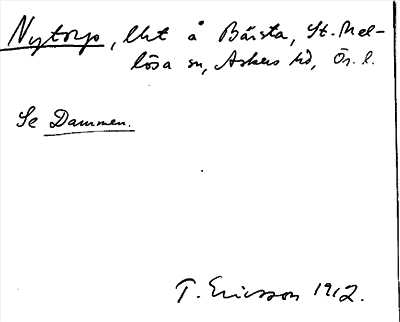 Nytorp, lht å Bärsta, St. Mel-
lösa sn, Askers hd, Ör. l.
Se Dammen.
T. Ericsson 1912.